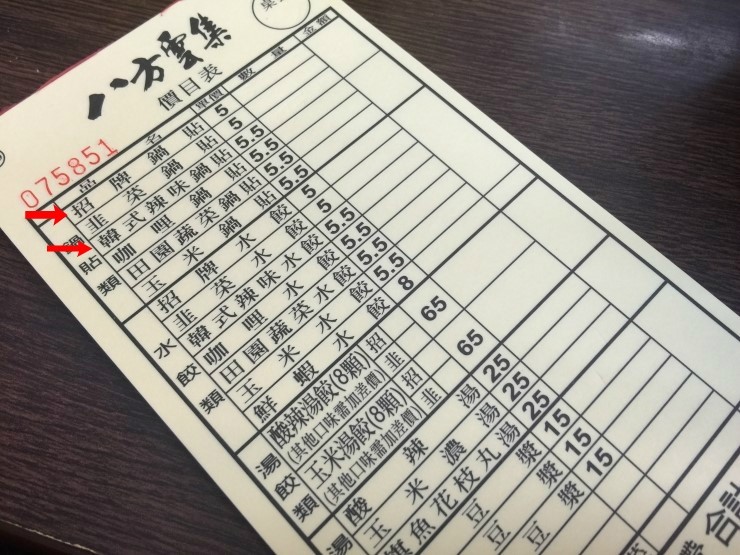 八方雲集
價目表
075851
品名 單價 數量 金額
鍋貼類
招牌鍋貼 5
韭菜鍋貼 5
韓式辣味鍋貼 5.5
咖哩鍋貼 5.5
田園蔬菜鍋貼 5.5
玉米鍋貼 5.5
水餃類
招牌水餃 5
韭菜水餃
韓式辣味水餃 5.5
咖哩水餃 5.5
田園蔬菜水餃 5.5
玉米水餃 5.5
鮮蝦水餃 8
湯餃類
酸辣湯餃(8顆) 招 韭 65
(其他口味需加差價)
玉米湯餃(8顆) 招 韭 65
(其他口味需加差價)
湯
酸辣湯 25
玉米濃湯 25
旗魚花枝丸湯 25
豆漿 15
豆漿 15
漿 15
合計